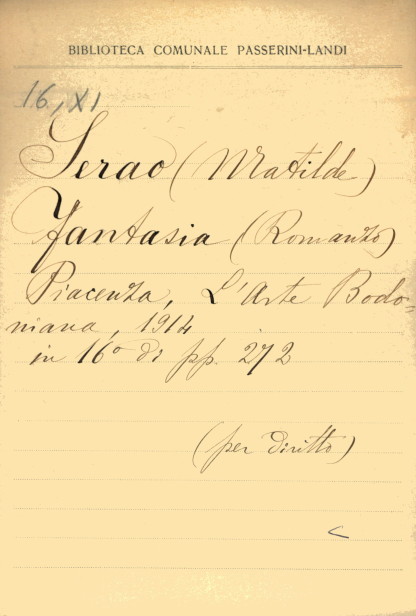 BIBLIOTECA COMUNALE PASSERINI-LANDI
16, XI
Serao (Matilde)
Fantasia (Romanzo)
Piacenza, L'Arte Bodo=
niana, 1914
in 16° di pp. 272
(per diritto)